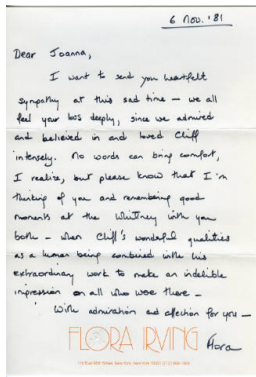 6 Nov. '81
Dear Joanna,
I want to send you heartfelt
sympathy at this sad time — we all
feel your loss deeply, since we admired
and believed in and loved Cliff
intensely. No words can bring comfort,
I realize, but please know that I'm
thinking of you and remembering good
moments at the Whitney with you
both — when Cliff's wonderful qualities
as a human being combined with his
extraordinary work to make an indelible
impression on all who were there —
With admiration and affection for you —
FLORA IRVING Flora